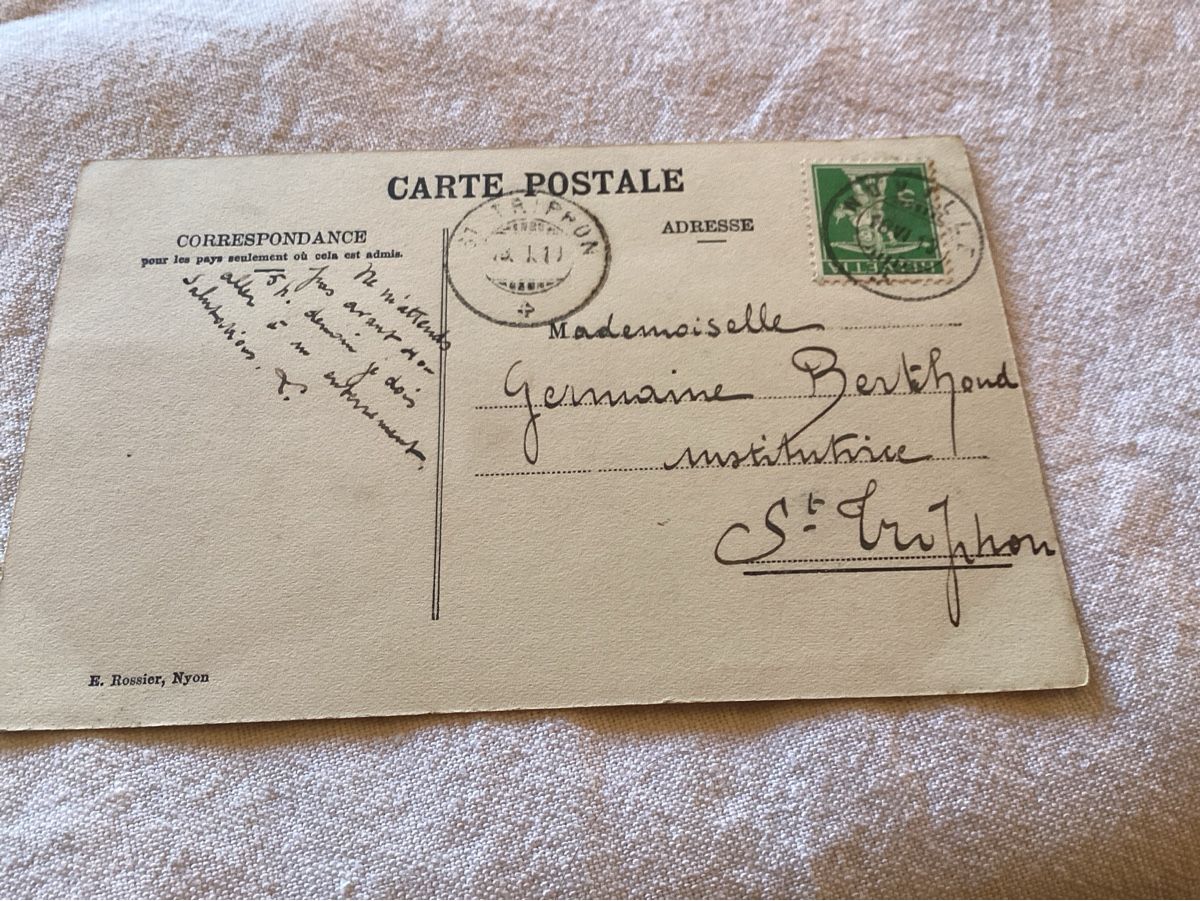 CARTE POSTALE
CORRESPONDANCE
pour les pays seulement où cela est admis.
ADRESSE
Ne m'attends
pas avant 4 ou
5 h. demain je dois
aller à un enterrement.
Salutations.
ST TRIPHON
HELVETIA
Mademoiselle
Germaine Berthoud
institutrice
St Triphon
E. Rossier, Nyon